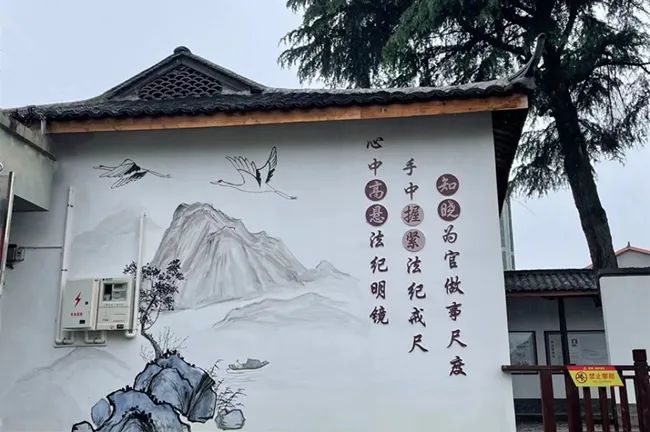 心中高悬法纪明镜
手中握紧法纪戒尺
知晓为官做事尺度
禁止攀爬